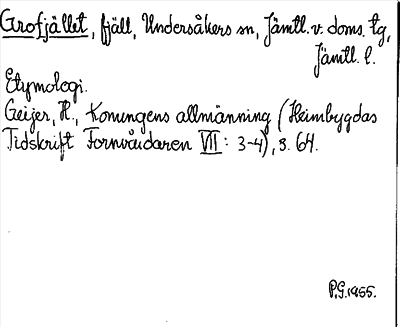 Grofjället, fjäll, Undersåkers sn, Jämtl. v. doms. tg,
Jämtl. l.
Etymologi.
Geijer, H., Konungens allmänning (Heimbygdas
Tidskrift Fornvårdaren VII: 3-4), s. 64.
P.G. 1955.